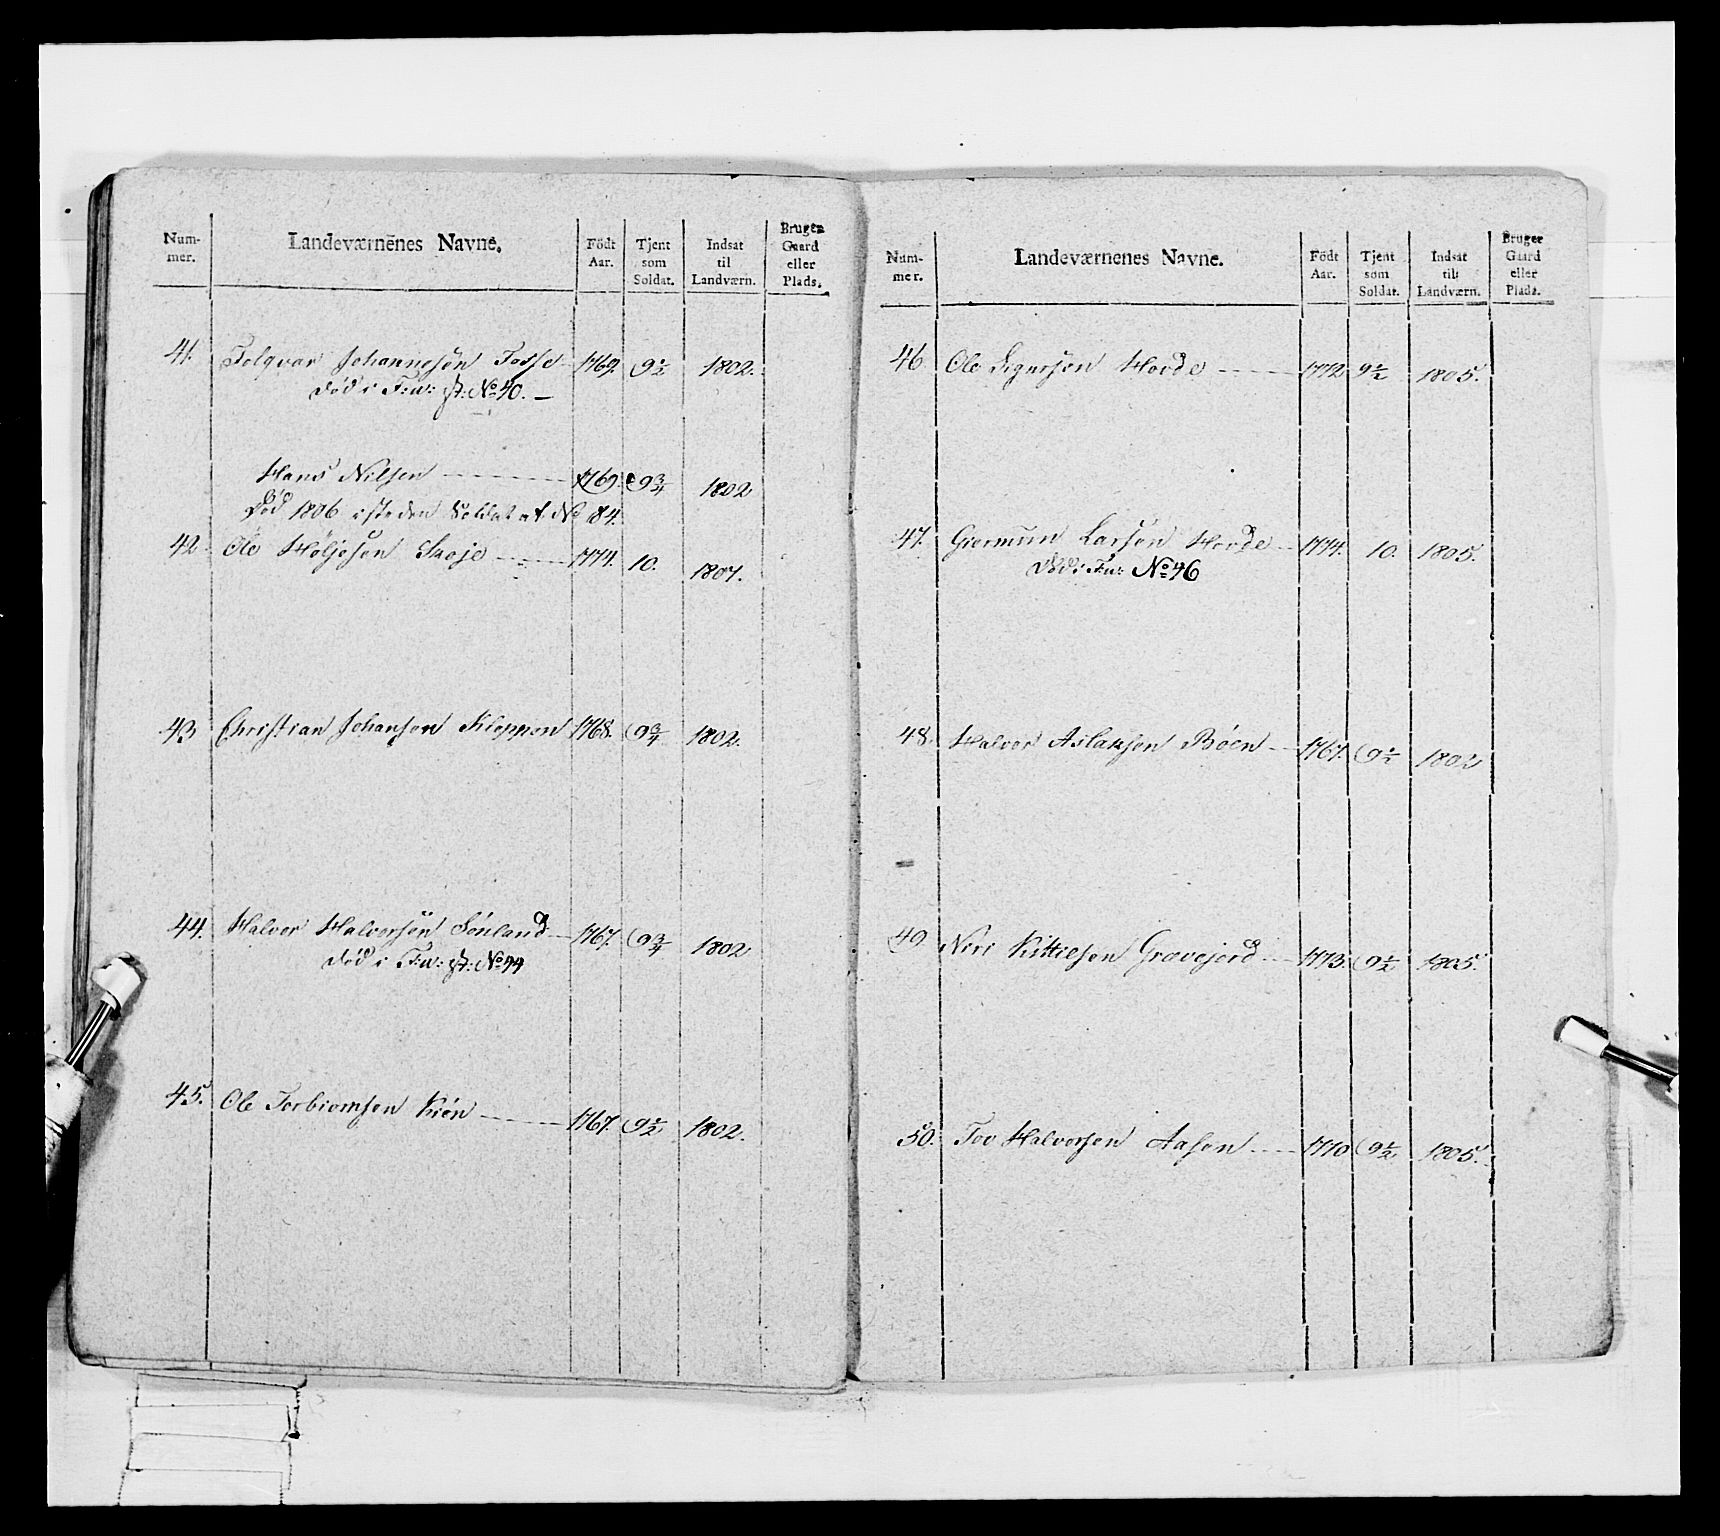 Num-
mer.
Landeværnenes Navne.
Födt
Aar.
Tjent
som
Soldat.
Indsat
til
Landværn.
Bruger
Gaard
eller
Plads.
41. Tolqvar Johannesen 1769. 9½ 1802.
Død i No 40.
Hans Nilsen 1769. 9¾ 1802
Død 1806 isteden Soldat af No 84.
42. Ole Höljesen 1774. 10. 1807.
43 Christian Johansen Kleppen 1768. 9¾ 1802.
44. Halvor Halvorsen Sönland 1767. 9¾ 1802
Död i No 44
45. Ole Torbiornsen 1767. 9½ 1802.
Num-
mer.
Landeværnenes Navne.
Födt
Aar.
Tjent
som
Soldat.
Indsat
til
Landværn.
Bruger
Gaard
eller
Plads.
46 Ole Sigursen Hovde 1772 9½ 1805.
47. Giermun Larsen Hovde 1774. 10. 1805.
Död i No 46
48. Halvor Aslaksen Böen 1767. 9½ 1802
49 Niri Kittelsen Gravejord 1773. 9½ 1805.
50. Tov Halvorsen Aasen 1770 9½ 1805.